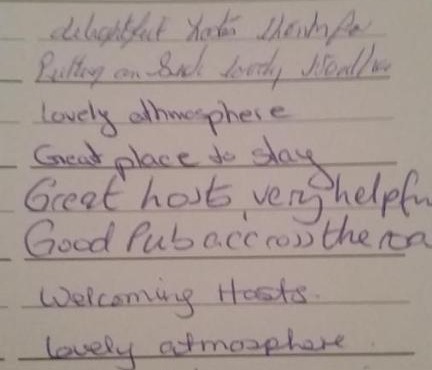 delightful hosts thanks for
Putting on such lovely
Lovely athmosphere
Great place to stay
Great hosts, very helpfu
Good Pub accross the roa
Welcoming Hosts.
Lovely atmosphere